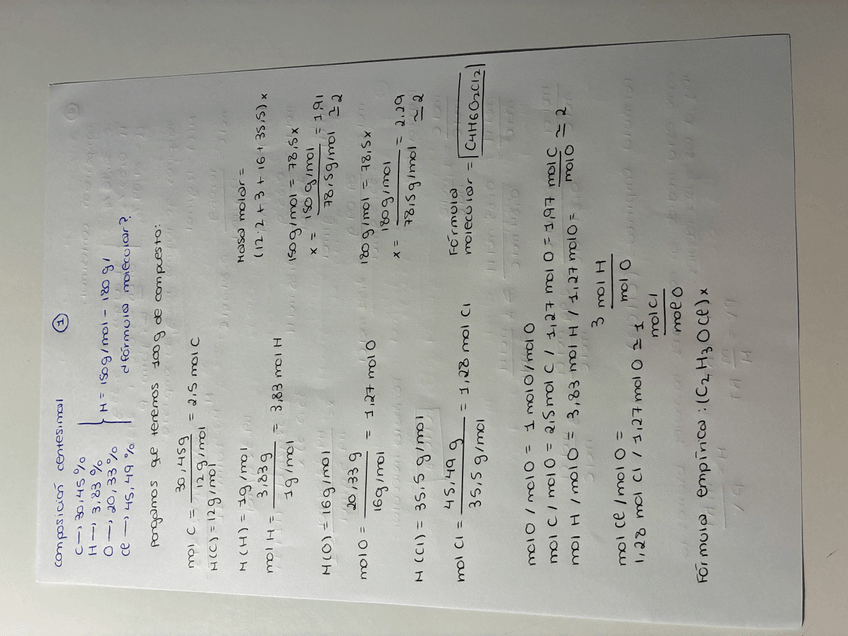 composición centesimal ①
C —, 30,45 %
H —, 3,83 %
O —, 20,33 %
Cl —, 45,49 %
M = 150g/mol – 180 g/
¿fórmula molecular?
Pongamos que tenemos 100g de compuesto:
mol C = 30,45 g / 12 g/mol = 2,5 mol C
M(C) = 12g/mol
M(H) = 1g/mol
mol H = 3,83 g / 1g/mol = 3,83 mol H
M(O) = 16g/mol
mol O = 20,33 g / 16g/mol = 1,27 mol O
M(Cl) = 35,5 g/mol
mol Cl = 45,49 g / 35,5 g/mol = 1,28 mol Cl
Masa molar =
(12·2 + 3 + 16 + 35,5) x
150g/mol = 78,5x
x = 150 g/mol / 78,5g/mol = 1,91 ≃ 2
180 g/mol = 78,5x
x = 180g/mol / 78,5 g/mol = 2,29 ≃ 2
Fórmula
molecular = C4H6O2Cl2
mol O / mol O = 1 mol O/mol O
mol C / mol O = 2,5 mol C / 1,27 mol O = 1,97 mol C / mol O ≃ 2
mol H / mol O = 3,83 mol H / 1,27 mol O =
3 mol H / mol O
mol Cl / mol O =
1,28 mol Cl / 1,27 mol O ≃ 1
mol Cl / mol O
Fórmula empírica : (C2H3OCl)x